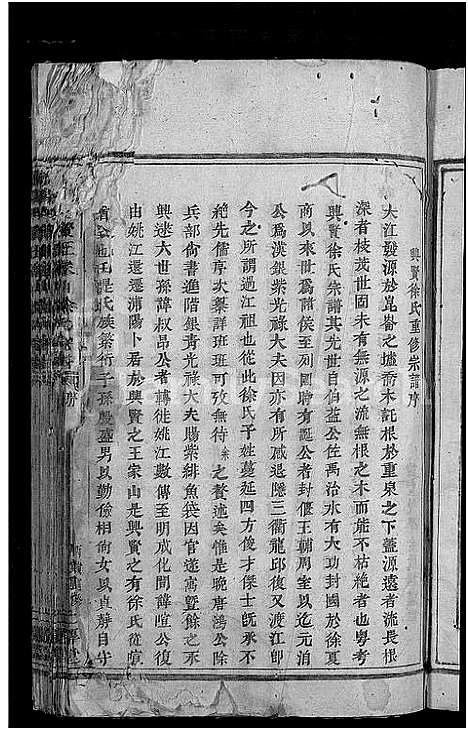 興賢徐氏重修宗譜序
大江發源於崑崙之墟喬木託根於重泉之下蓋源遠者流長根
深者枝茂世固未有無源之流無根之木而能不枯絕者也粵考
興賢徐氏宗譜其先世自伯益公佐禹治水有大功封國於徐夏
商以來世爲諸侯至列國時有誕公者封偃王輔周室以迄元洎
公爲漢銀紫光祿大夫因亦有所感退隱三衢龍邱復又渡江卽
今之所謂過江祖也從此徐氏子姓蔓延四方俊才傑士旣承不
絕先儒序次槩詳班班可攷無待余之贅述矣惟是晚唐鴻公除
兵部尙書進階銀靑光祿大夫賜紫緋魚袋因官遂寓暨餘之承
興逮大世孫諱叔昂公者轉徙姚江數傳至明成化間諱暄公復
由姚江還遷浦陽卜居於興賢之王家山是興賢之有徐氏從暄
公始也氏族繁衍子孫殷盛男以勤儉相尙女以貞靜自守